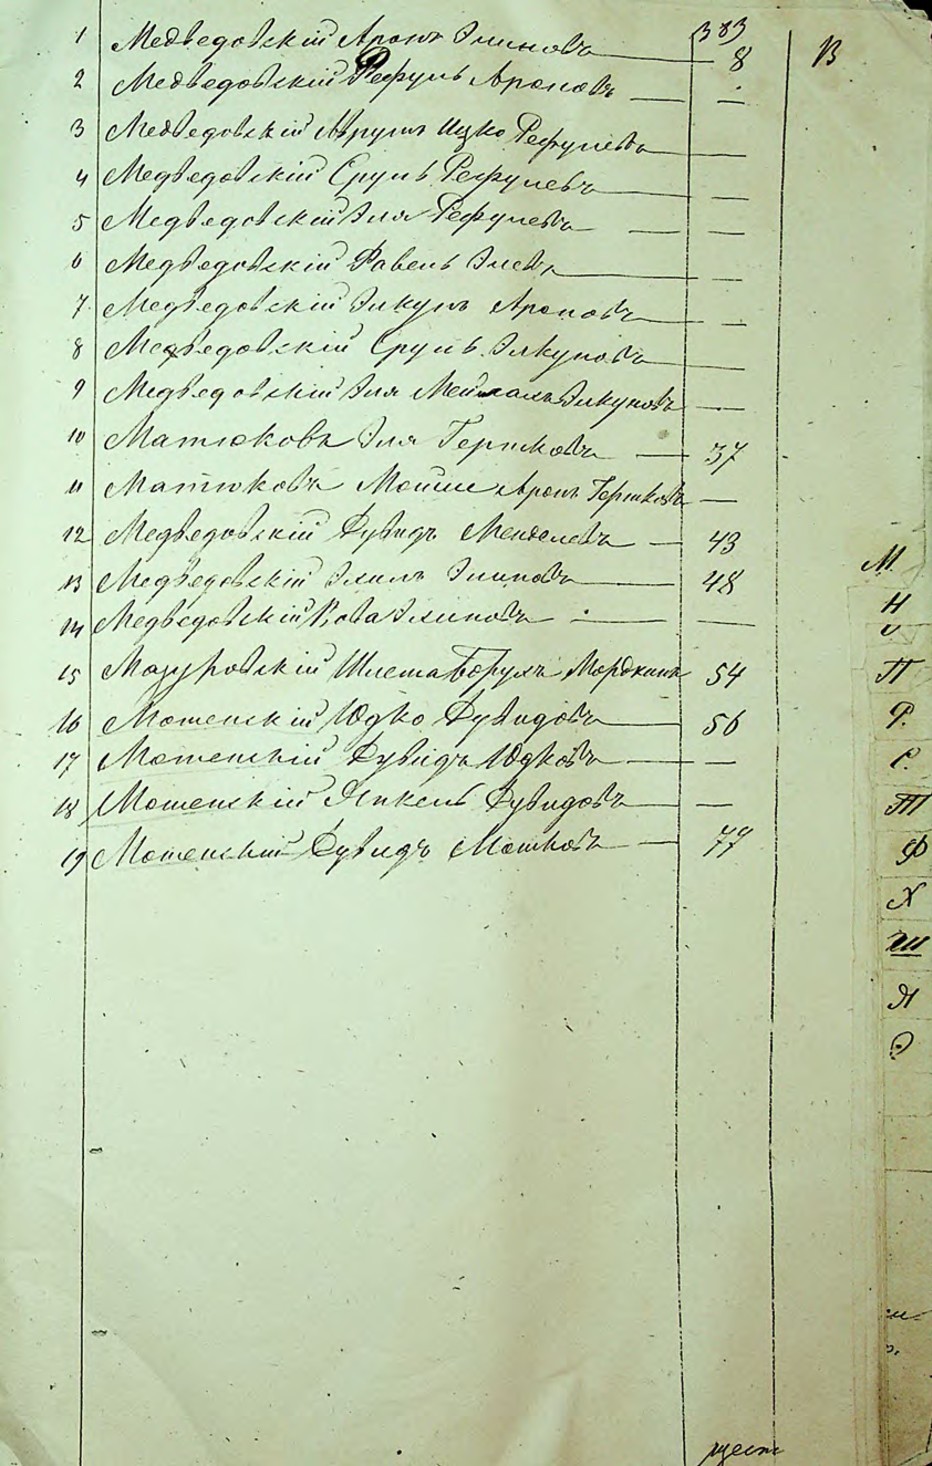 383
1 Медведовскій Аронъ Элиновъ 8 В
2 Медведовскій Рефуль Ароновъ —
3 Медведовскій Аврумъ Ицко Рефулевъ —
4 Медведовскій Сруль Рефулевъ —
5 Медведовскій Эля Рефулевъ —
6 Медведовскій Элевъ —
7 Медведовскій Элкунъ Ароновъ —
8 Медведовскій Сруль Элкуновъ —
9 Медведовскій Эля Элкуновъ —
10 Матюковъ Эля Гершковъ — 37
11 Матюковъ Мойше Аронъ Гершковъ —
12 Медведовскій Дувидъ Менделевъ — 43
13 Медведовскій Элиновъ 48
14 Медведовскій —
15 Мазуровскій Шлема Борухъ Мордкинъ 54
16 Мошенскій Юдко Дувидовъ 56
17 Мошенскій Дувидъ Юдковъ —
18 Мошенскій Янкель Дувидовъ —
19 Мошенскій Дувидъ Мошковъ — 77
М
Н
О
П
Р.
С.
Т
Ф
Х
Ш
Я
Э